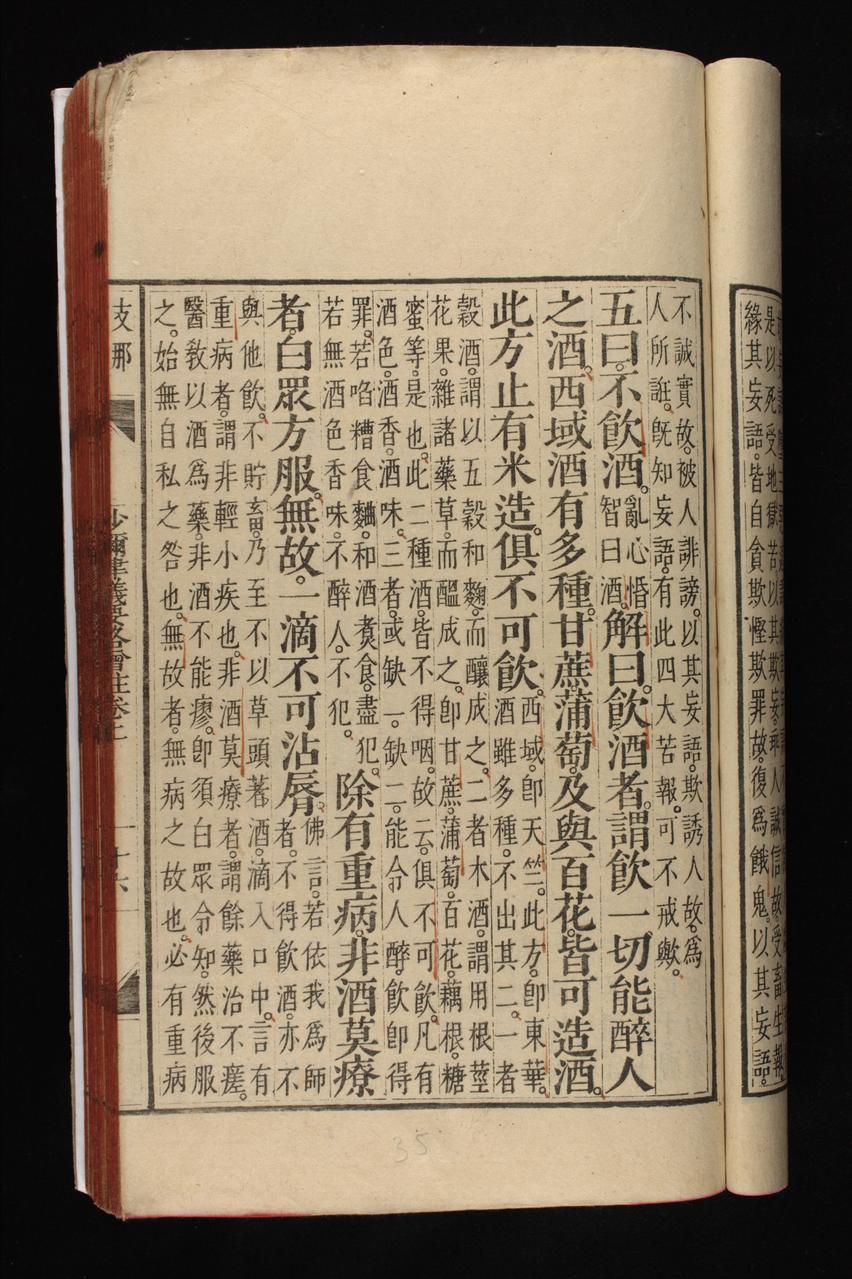 是以死受地獄苦以其欺妄
緣其妄語。皆自貪欺慳欺罪故。復爲餓鬼。以其妄語。
不誠實故。被人誹謗。以其妄語。欺誘人故。爲
人所誑。旣知妄語。有此四大苦報。可不戒歟。
五曰。不飲酒。
亂心惛
智曰酒。
解曰。飲酒者。謂飲一切能醉人
之酒。西域酒有多種。甘蔗蒲萄。及與百花。皆可造酒。
此方止有米造。俱不可飲。
西域。卽天竺。此方。卽東華。
酒雖多種。不出其二。一者
糓酒。謂以五糓和麴。而釀成之。二者木酒。謂用根莖
花果。雜諸藥草。而醞成之。卽甘蔗。蒲萄。百花。藕根。糖
蜜等。是也。此二種酒。皆不得咽。故云。俱不可飲。凡有
酒色。酒香。酒味。三者。或缺一。缺二。能令人醉。飲卽得
罪。若啗糟食麯。和酒煑食。盡犯。
若無酒色香味。不醉人。不犯。
除有重病。非酒莫療
者。白眾方服。無故。一滴不可沾脣。
佛言。若依我爲師
者。不得飲酒。亦不
與他飲。不貯畜。乃至不以草頭蓍酒。滴入口中。言有
重病者。謂非輕小疾也。非酒莫療者。謂餘藥治不瘥。
醫敎以酒爲藥。非酒不能瘳。卽須白眾令知。然後服
之。始無自私之咎也。無故者。無病之故也。必有重病
支那
沙彌律義要畧會註卷上
十六
35